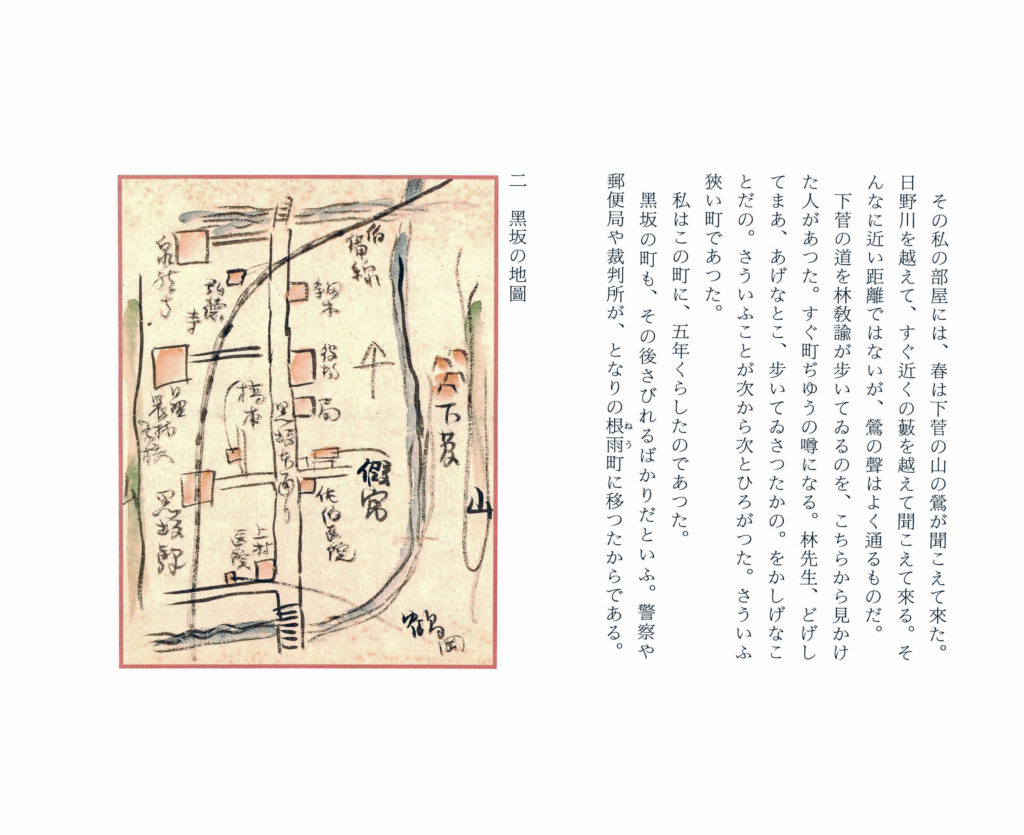 その私の部屋には、春は下菅の山の鶯が聞こえて來た。
日野川を越えて、すぐ近くの藪を越えて聞こえて來る。そ
んなに近い距離ではないが、鶯の聲はよく通るものだ。
下菅の道を林敎諭が歩いてゐるのを、こちらから見かけ
た人があつた。すぐ町ぢゆうの噂になる。林先生、どげし
てまあ、あげなとこ、歩いてゐさつたかの。をかしげなこ
とだの。さういふことが次から次とひろがつた。さういふ
狹い町であつた。
私はこの町に、五年くらしたのであつた。
黑坂の町も、その後さびれるばかりだといふ。警察や
郵便局や裁判所が、となりの根雨町に移つたからである。
ねう
二 黑坂の地圖
伯備線
泉龍寺
役場
局
橋本
黒坂本通り
假寓
佐伯医院
上村医院
黒坂駅
下菅
山
山
鶴岡